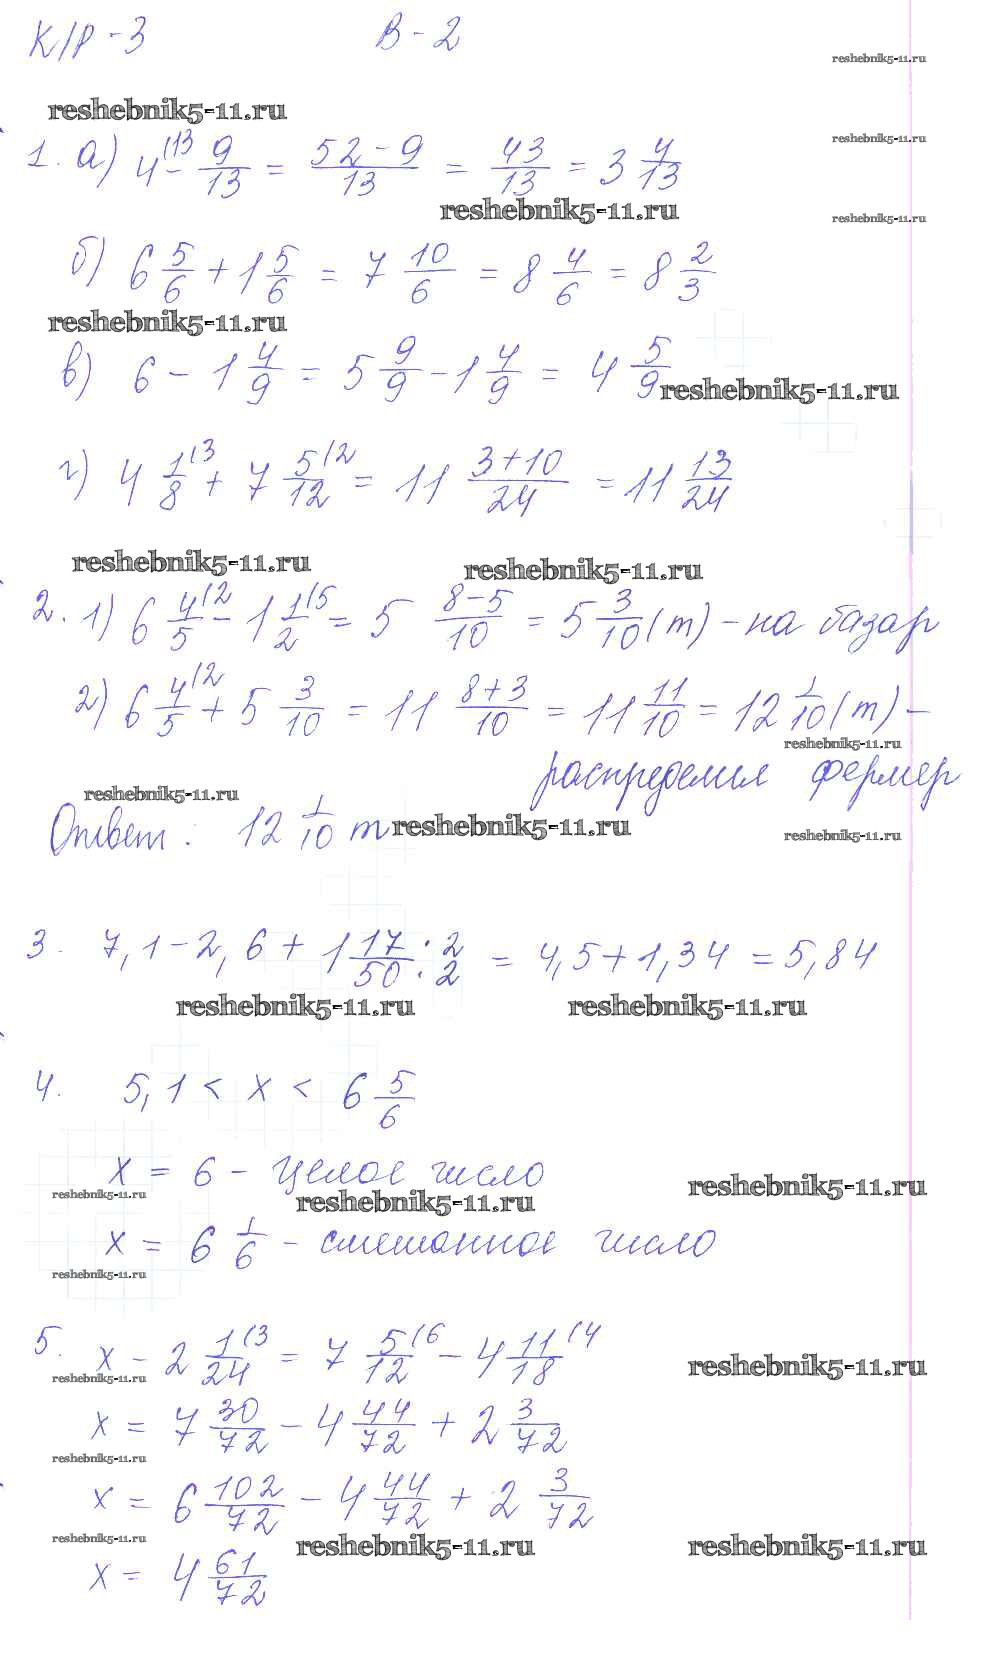 К/Р - 3 В - 2
reshebnik5-11.ru
reshebnik5-11.ru
reshebnik5-11.ru
1. а) 4(13 - 9/13 = 52-9/13 = 43/13 = 3 4/13
reshebnik5-11.ru
reshebnik5-11.ru
б) 6 5/6 + 1 5/6 = 7 10/6 = 8 4/6 = 8 2/3
reshebnik5-11.ru
в) 6 - 1 4/9 = 5 9/9 - 1 4/9 = 4 5/9
reshebnik5-11.ru
г) 4 1/8(3 + 7 5/12(2 = 11 3+10/24 = 11 13/24
reshebnik5-11.ru reshebnik5-11.ru
2. 1) 6 4/5(2 - 1 1/2(5 = 5 8-5/10 = 5 3/10 (т) - на базар
2) 6 4/5(2 + 5 3/10 = 11 8+3/10 = 11 11/10 = 12 1/10 (т) -
reshebnik5-11.ru
распределил фермер
reshebnik5-11.ru
Ответ: 12 1/10 т
reshebnik5-11.ru
reshebnik5-11.ru
3. 7,1 - 2,6 + 1 17/50 · 2/2 = 4,5 + 1,34 = 5,84
reshebnik5-11.ru reshebnik5-11.ru
4. 5,1 < x < 6 5/6
x = 6 - целое число
reshebnik5-11.ru reshebnik5-11.ru reshebnik5-11.ru
x = 6 1/6 - смешанное число
reshebnik5-11.ru
5. x - 2 1/24(3 = 7 5/12(6 - 4 11/18(4
reshebnik5-11.ru reshebnik5-11.ru
x = 7 30/72 - 4 44/72 + 2 3/72
reshebnik5-11.ru
x = 6 102/72 - 4 44/72 + 2 3/72
reshebnik5-11.ru reshebnik5-11.ru reshebnik5-11.ru
x = 4 61/72